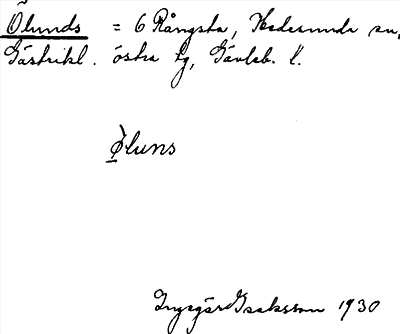 Ölunds = 6 Rångsta, Hedesunda sn,
Gästrikl. östra tg, Gävleb. l.
Øluns
Ingegärd Isaksson 1930